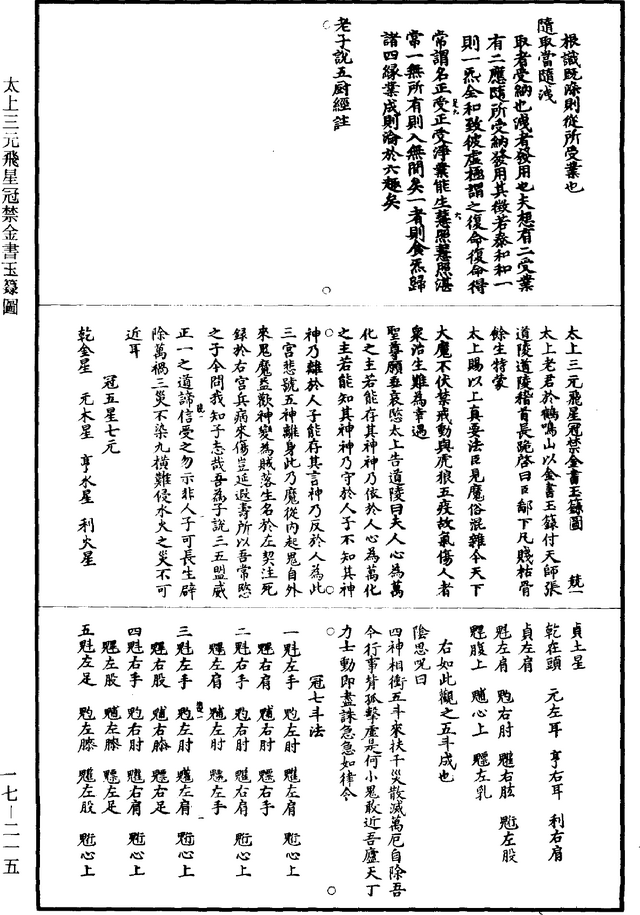 太上三元飛星冠禁金書玉籙圖
一七—二一五
根識既除則從所受業也
隨取當隨淺
取者受納也淺者發用也夫想有二受業
有二應隨所受納發用其徵若泰和和一
則一炁全和致彼虛極謂之復命復命得
常謂名正受正受淨業能生慧照慧照湛
常一無所有則入無間矣一者則食炁歸
諸四緣業成則淪於六趣矣
老子說五厨經註
太上三元飛星冠禁金書玉籙圖 兢一
太上老君於鶴鳴山以金書玉籙付天師張
道陵道陵稽首長跪啓曰臣鄙下凡賤枯骨
餘生特蒙
太上賜以上真要法臣見魔俗混雜今天下
大魔不伏禁戒動與虎狼五疫故氣傷人者
衆治生難為幸遇
聖尊願垂哀愍太上告道陵曰夫人心為萬
化之主若能存其神神乃依於人心為萬化
之主若能知其神神乃守於人子不知其神
神乃離於人子能存其言神乃反於人為此
三宮悲號五神離身此乃魔從內起鬼自外
來鬼魔益歡神變為賊落生名於左契注死
錄於右宮兵病來傷豈延遐壽所以吾常愍
之子今問我知子志哉吾為子說三五盟威
正一之道諦信受之勿示非人子可長生辟
除萬禍三災不染九橫難侵水火之災不可
近耳
冠五星七元
乾金星 元木星 亨水星 利火星
貞土星
乾在頭 元左耳 亨右耳 利右肩
貞左肩
魁左肩 右肘 右胘 左股
腹上 心上 左乳
右如此觀之五斗成也
陰思呪曰
四神相衝五斗來扶千災散滅萬厄自除吾
今行事背孤擊虛是何小鬼敢近吾廬天丁
力士動即盡誅急急如律令
冠七斗法
一魁左手 左肘 左肩 心上
右肩 右肘 右手
二魁右手 右肘 右肩 心上
左肩 左肘 左手
三魁左手 左肘 左肩 心上
右股 右膝 右足
四魁右手 右肘 右肩 心上
左股 左膝 左足
五魁左足 左膝 左股 心上